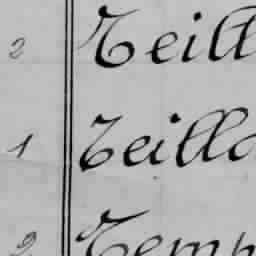 2 Teill
1 Teilla
2 Temp